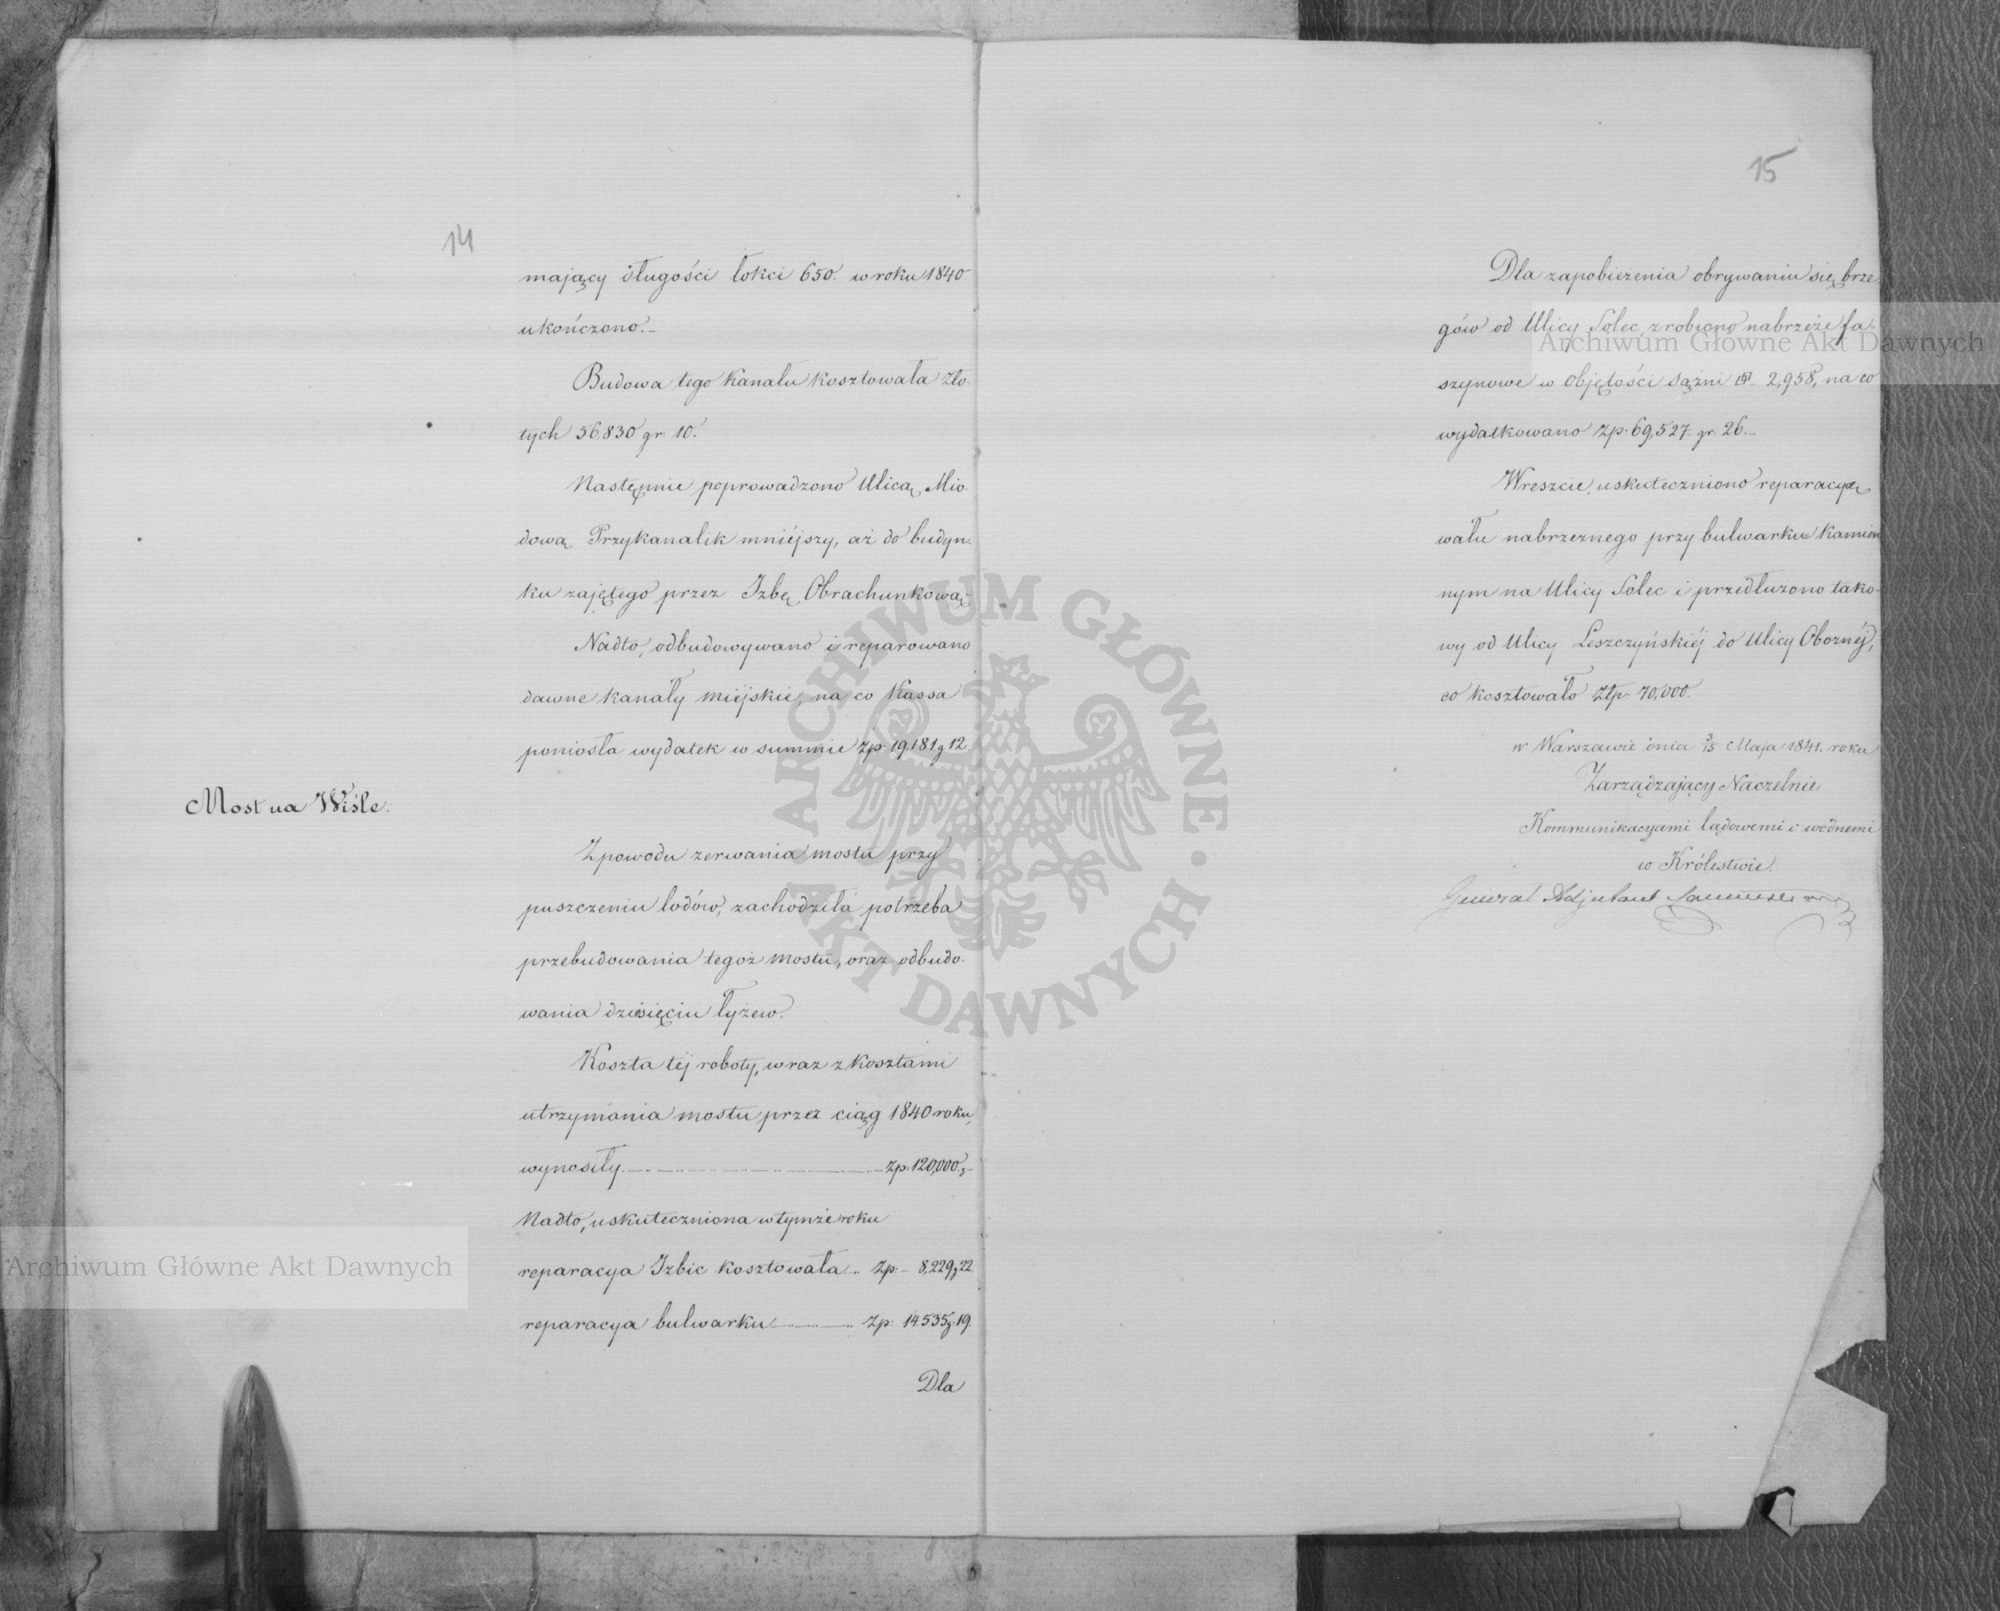 14
mający długości łokci 650. w roku 1840
ukończono.
Budowa tego Kanału kosztowała zło-
tych 56,830 gr. 10.
Następnie poprowadzono Ulicą Mio-
dową Przykanalik mniéjszy, aż do budyn-
ku zajętego przez Izbę Obrachunkową.
Nadto, odbudowywano i reparowano
dawne kanały miéjskie, na co Kassa
poniosła wydatek w summie zp. 19,181 g 12
Most na Wiśle.
Z powodu zerwania mostu przy
puszczeniu lodów, zachodziła potrzeba
przebudowania tegoż mostu, oraz odbudo-
wania dziesięciu łyżew.
Koszta téj roboty, wraz z kosztami
utrzymania mostu przez ciąg 1840 roku,
wynosiły zp. 120,000.
Nadto, uskuteczniona w tymże roku
reparacya Izbic kosztowała zp. 8,229 g 22.
reparacya bulwarku zp. 14535 g. 19.
Dla
15
Dla zapobieżenia obrywaniu się brze-
gów od Ulicy Solec, zrobiono nabrzeże fa-
szynowe w objętości sążni 2,958, na co
wydatkowano zp. 69,527 gr. 26.
Wreszcie, uskuteczniono reparacyę
wału nabrzeznego przy bulwarku kamien
nym na Ulicy Solec i przedłużono tako-
wy od Ulicy Leszczyńskiéj do Ulicy Oboznéj,
co kosztowało Złp. 70,000.
w Warszawie dnia 3/15 Maja 1841. roku
Zarządzający Naczelnie
Kommunikacyami lądowemi i wodnemi
w Królestwie.
Generał Adjutant
Archiwum Główne Akt Dawnych
Archiwum Główne Akt Dawnych
ARCHIWUM GŁÓWNE AKT DAWNYCH